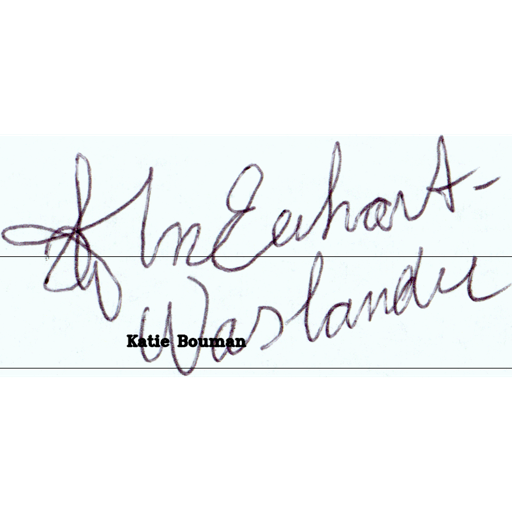 Earhart-
Waslander
Katie Bouman